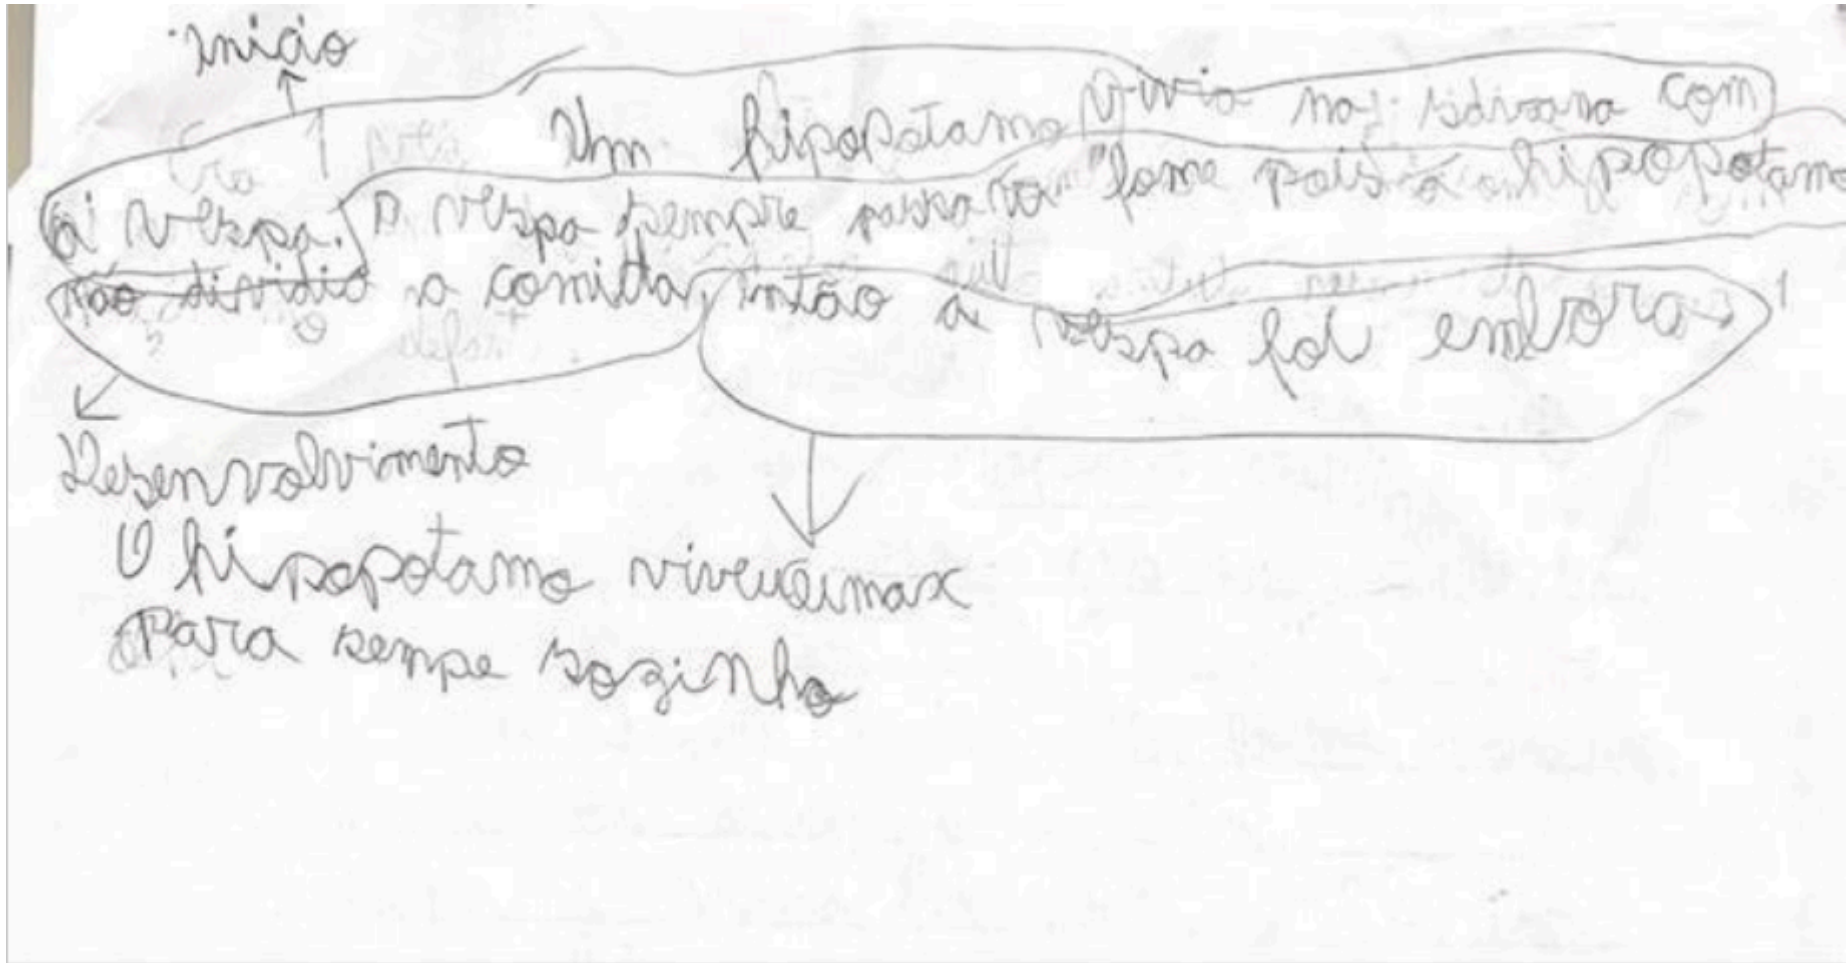 inicio
Um hipopotamo vivia na savana com
a vespa. A vespa sempre passava fome pois o hipopotamo
não dividia a comida, então a vespa foi embora
Desenvolvimento
O hipopotamo viveu climax
para sempe sozinho